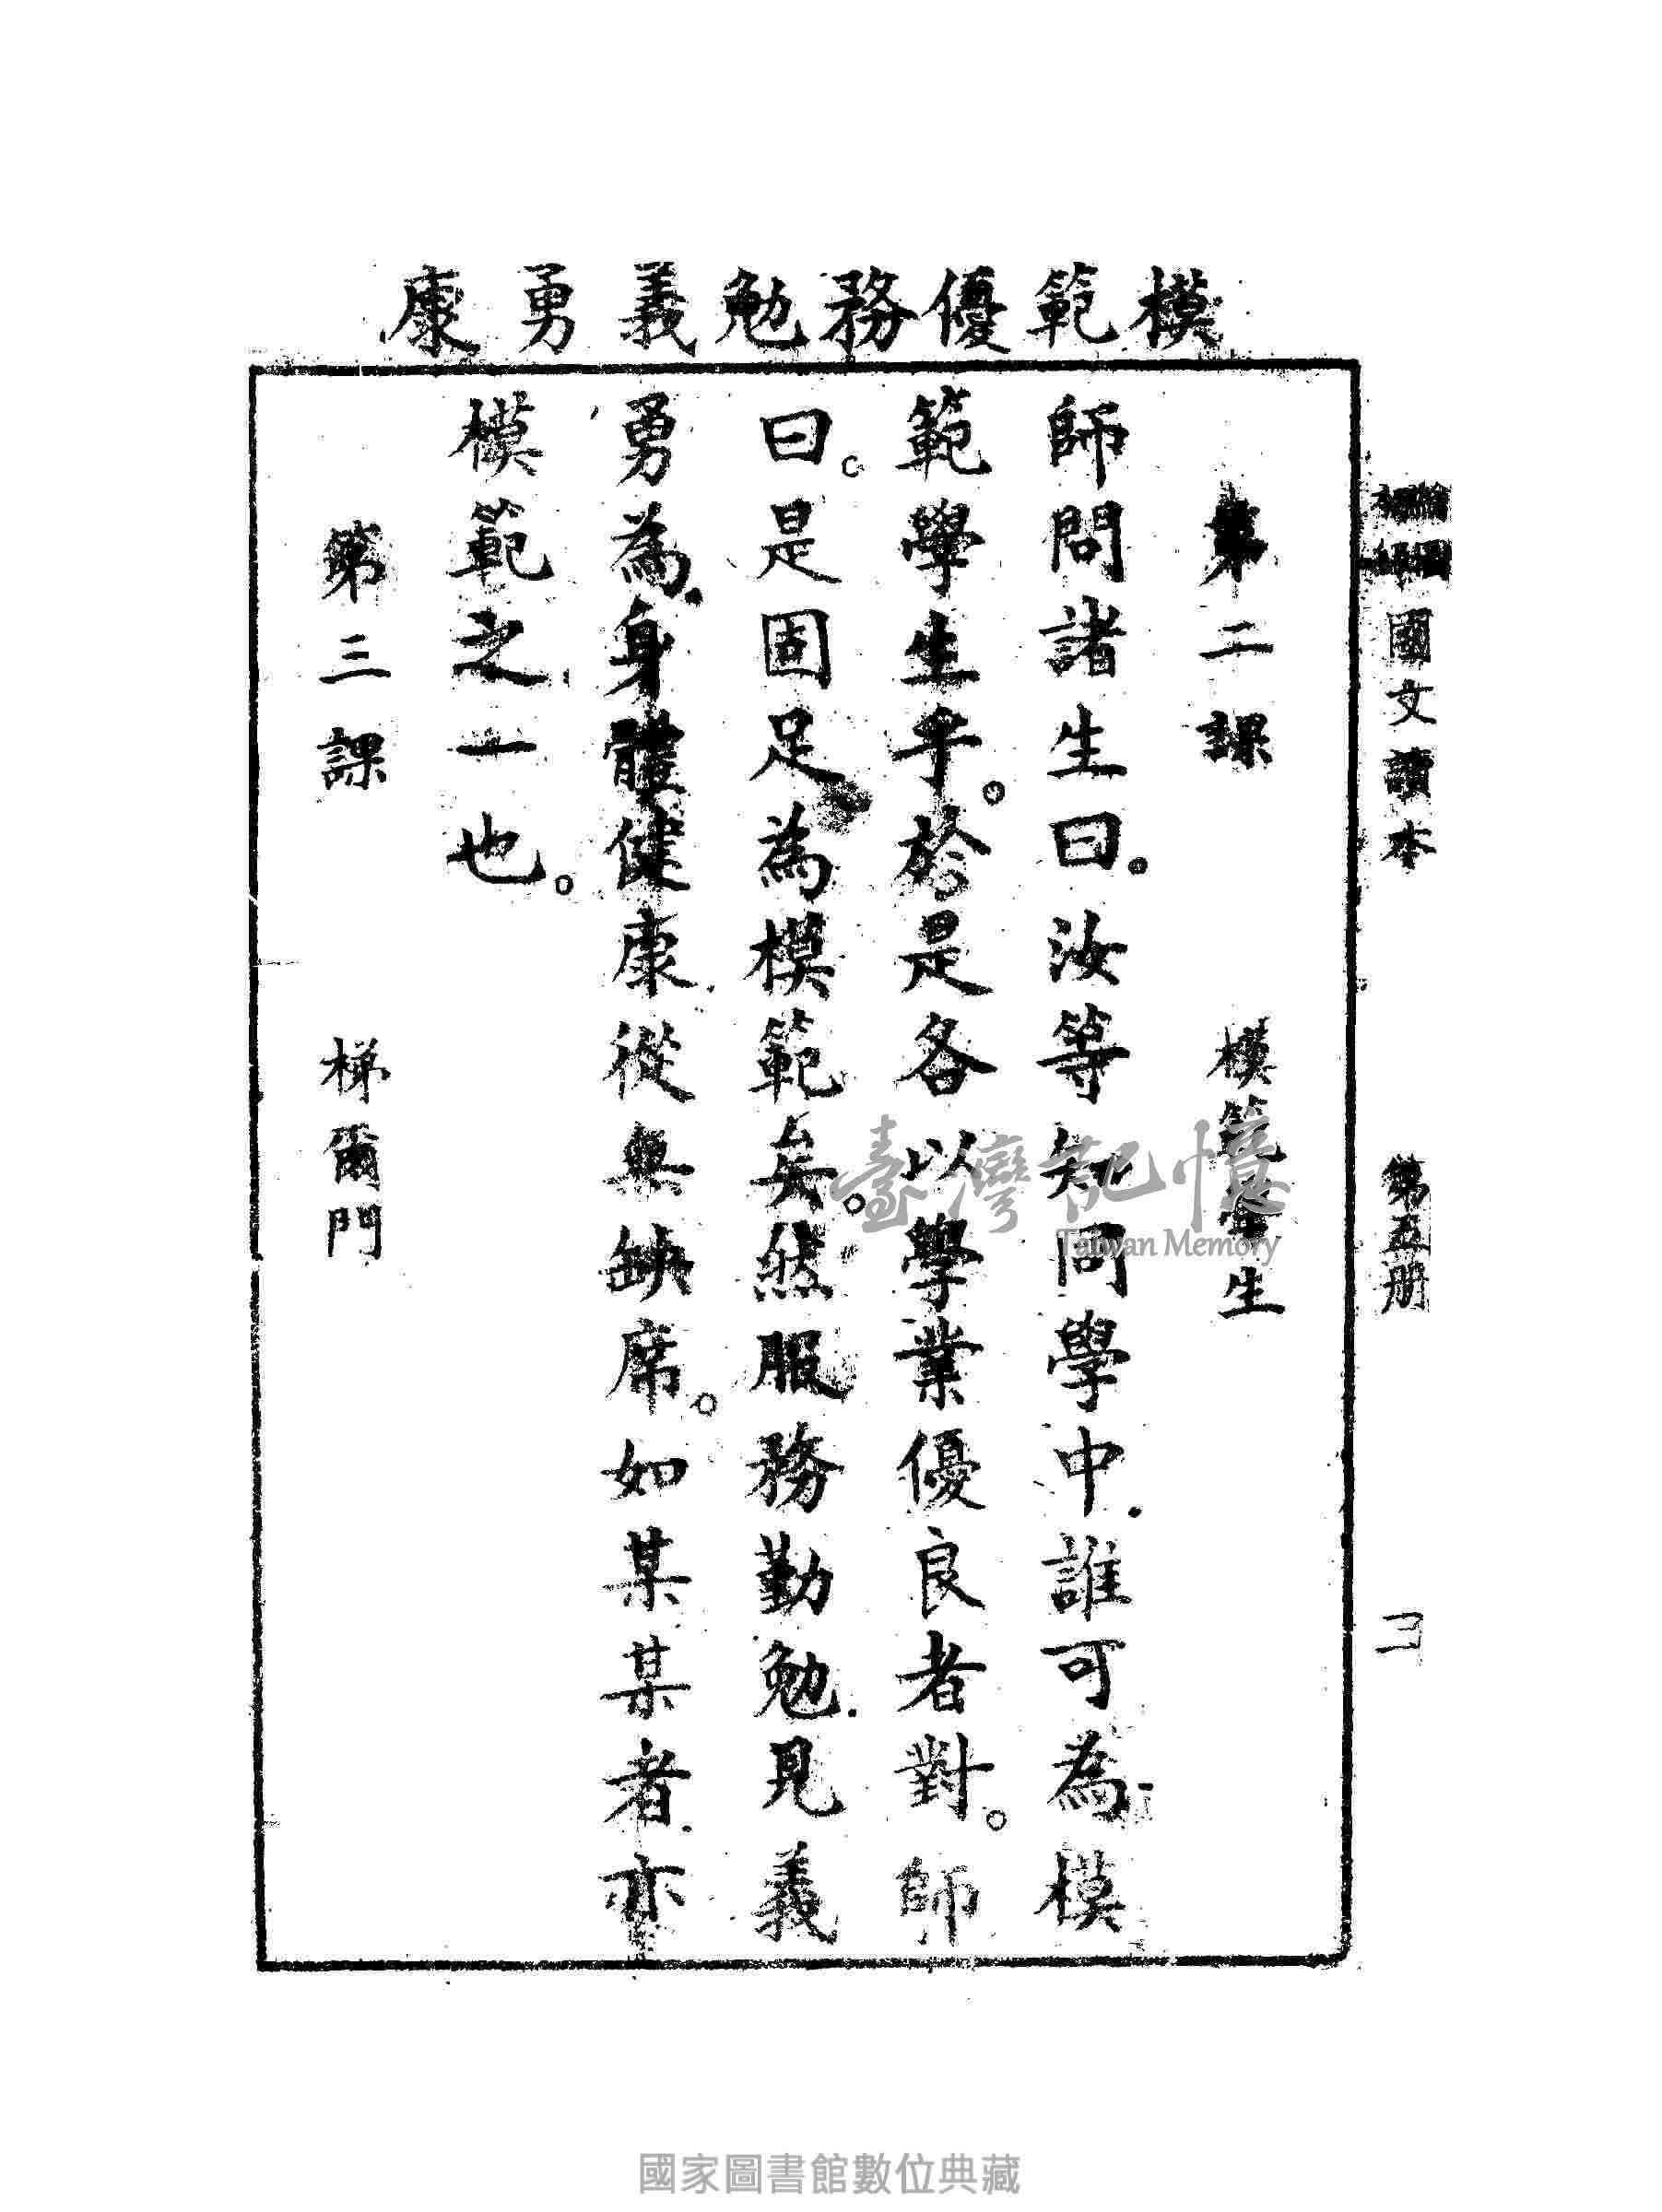 模範優務勉義勇康
國文讀本
第五册
第二課 模範學生
師問諸生曰。汝等知同學中.誰可為模
範學生乎。於是各以學業優良者對。師
曰。是固足為模範矣。然服務勤勉.見義
勇為.身體健康.從無缺席。如某某者.亦
模範之一也。
第三課 梯爾門
臺灣記憶
Taiwan Memory
國家圖書館數位典藏